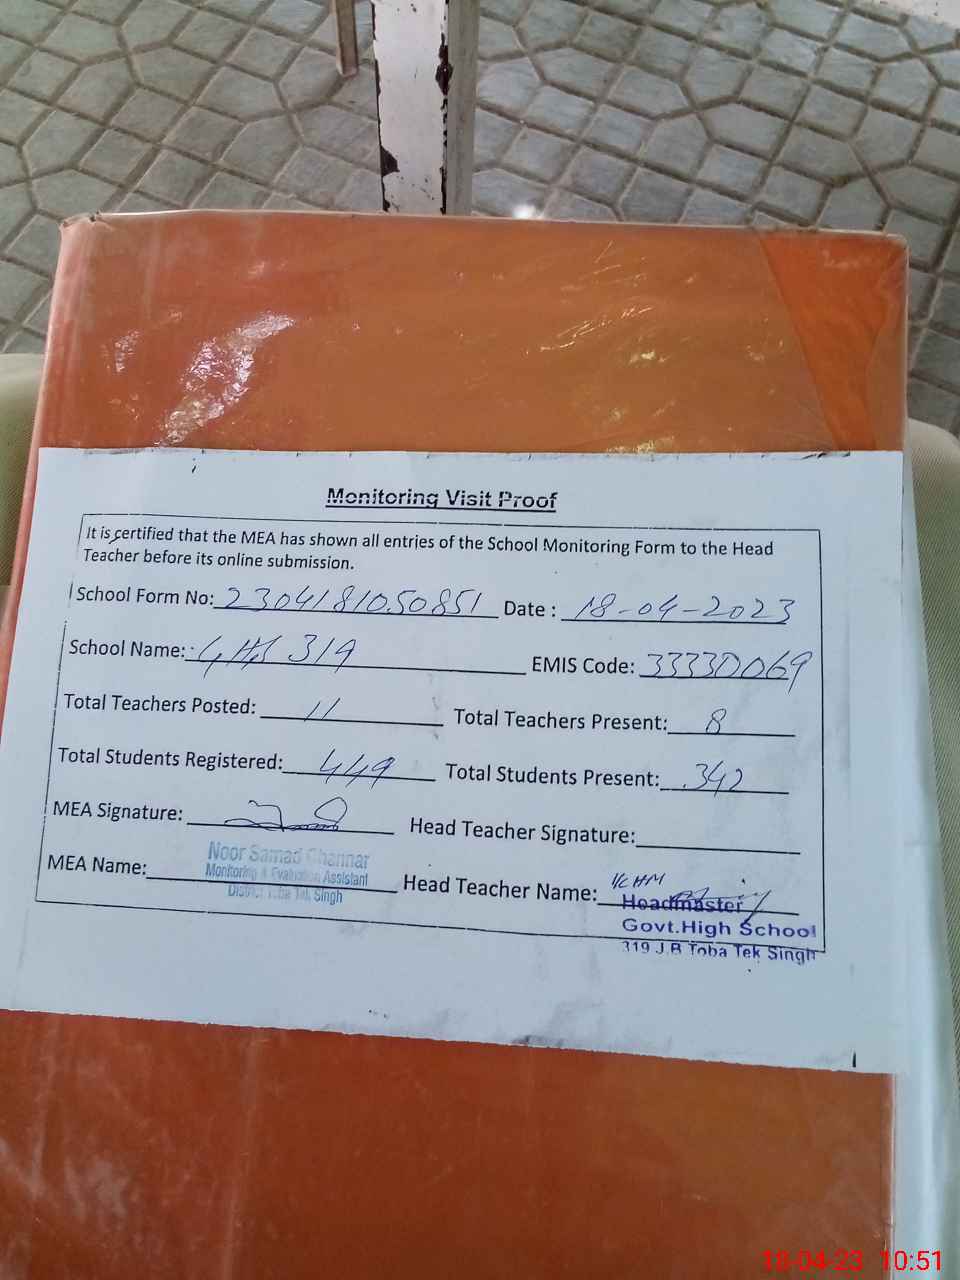 Monitoring Visit Proof
It is certified that the MEA has shown all entries of the School Monitoring Form to the Head
Teacher before its online submission.
School Form No: 2304181050851 Date : 18-04-2023
School Name: GHS 319 EMIS Code: 33330069
Total Teachers Posted: 11 Total Teachers Present: 8
Total Students Registered: 449 Total Students Present: 342
MEA Signature: Head Teacher Signature:
MEA Name: Noor Samad Channar Head Teacher Name: I/C HM
Monitoring & Evaluation Assistant
District Toba Tek Singh
Headmaster
Govt.High School
319 J.B Toba Tek Singh
18-04-23 10:51